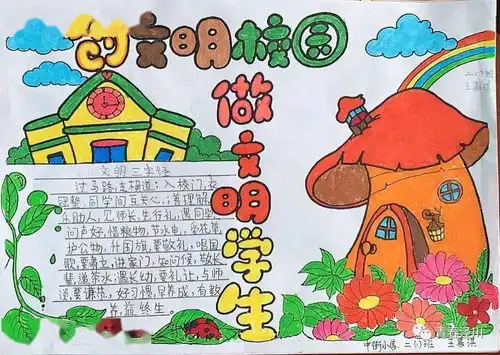 创文明校园
做文明学生
二(1)班
文明三字经
过马路,走横道;入校门,衣
冠整,同学间,互关心,善理解,
乐助人,见师长,先行礼,遇同学
问声好,惜粮物,节水电,爱花草,
护公物,升国旗,要敬礼,唱国
歌,要肃立,进家门,知问候,敬长
辈,递茶水,遇长幼,要礼让,与师
谈,要谦恭,好习惯,早养成,有教
养,益终生。
中街小学 二(1)班